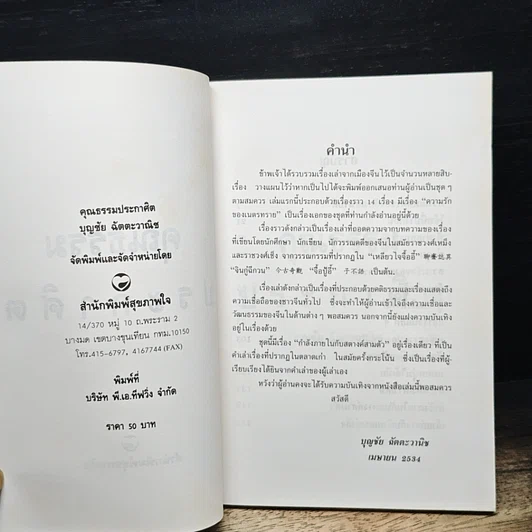 คุณธรรมประกาศิต
บุญชัย ฉัตตะวานิช
จัดพิมพ์และจัดจำหน่ายโดย
สำนักพิมพ์สุขภาพใจ
14/370 หมู่ 10 ถ.พระราม 2
บางมด เขตบางขุนเทียน กทม.10150
โทร.415-6797, 4167744 (FAX)
พิมพ์ที่
บริษัท พี.เอ.ลีฟวิ่ง จำกัด
ราคา 50 บาท
คำนำ
ข้าพเจ้าได้รวบรวมเรื่องเล่าจากเมืองจีนไว้เป็นจำนวนหลายสิบ-
เรื่อง วางแผนไว้ว่าหากเป็นไปได้จะพิมพ์ออกเสนอท่านผู้อ่านเป็นชุด ๆ
ตามสมควร เล่มแรกนี้ประกอบด้วยเรื่องราว 14 เรื่อง มีเรื่อง "ความรัก
ของเนตรทราย" เป็นเรื่องเอกของชุดที่ท่านกำลังอ่านอยู่นี้ด้วย
เรื่องราวดังกล่าวเป็นเรื่องที่ถอดความจากบทความของเรื่อง
ที่เขียนโดยนักศึกษา นักเขียน นักวรรณคดีของจีนในสมัยราชวงศ์เหม็ง
และราชวงศ์เช็ง จากวรรณกรรมที่ปรากฏใน "เหลียวไจจื้ออี้" 聊齋誌異
"จินกู่ฉีกวน" 今古奇觀 "จื่อปู้อี้" 子不語 เป็นต้น.
เรื่องเล่าดังกล่าวเป็นเรื่องที่ประกอบด้วยคติธรรมและเรื่องแสดงถึง
ความเชื่อถือของชาวจีนทั่วไป ซึ่งจะทำให้ผู้อ่านเข้าใจถึงความเชื่อและ
วัฒนธรรมของจีนในด้านต่าง ๆ พอสมควร นอกจากนี้ยังแฝงความบันเทิง
อยู่ในเรื่องด้วย
ชุดนี้มีเรื่อง "กำลังภายในกับสตางค์สามรู" อยู่เรื่องเดียว ที่เป็น
คำเล่าเรื่องที่ปรากฏในตลาดเก่า ในสมัยครั้งกระโน้น ซึ่งเป็นเรื่องที่ผู้-
เรียบเรียงได้ยินจากคำเล่าของผู้เล่าเอง
หวังว่าผู้อ่านคงจะได้รับความบันเทิงจากหนังสือเล่มนี้พอสมควร
สวัสดี
บุญชัย ฉัตตะวานิช
เมษายน 2534